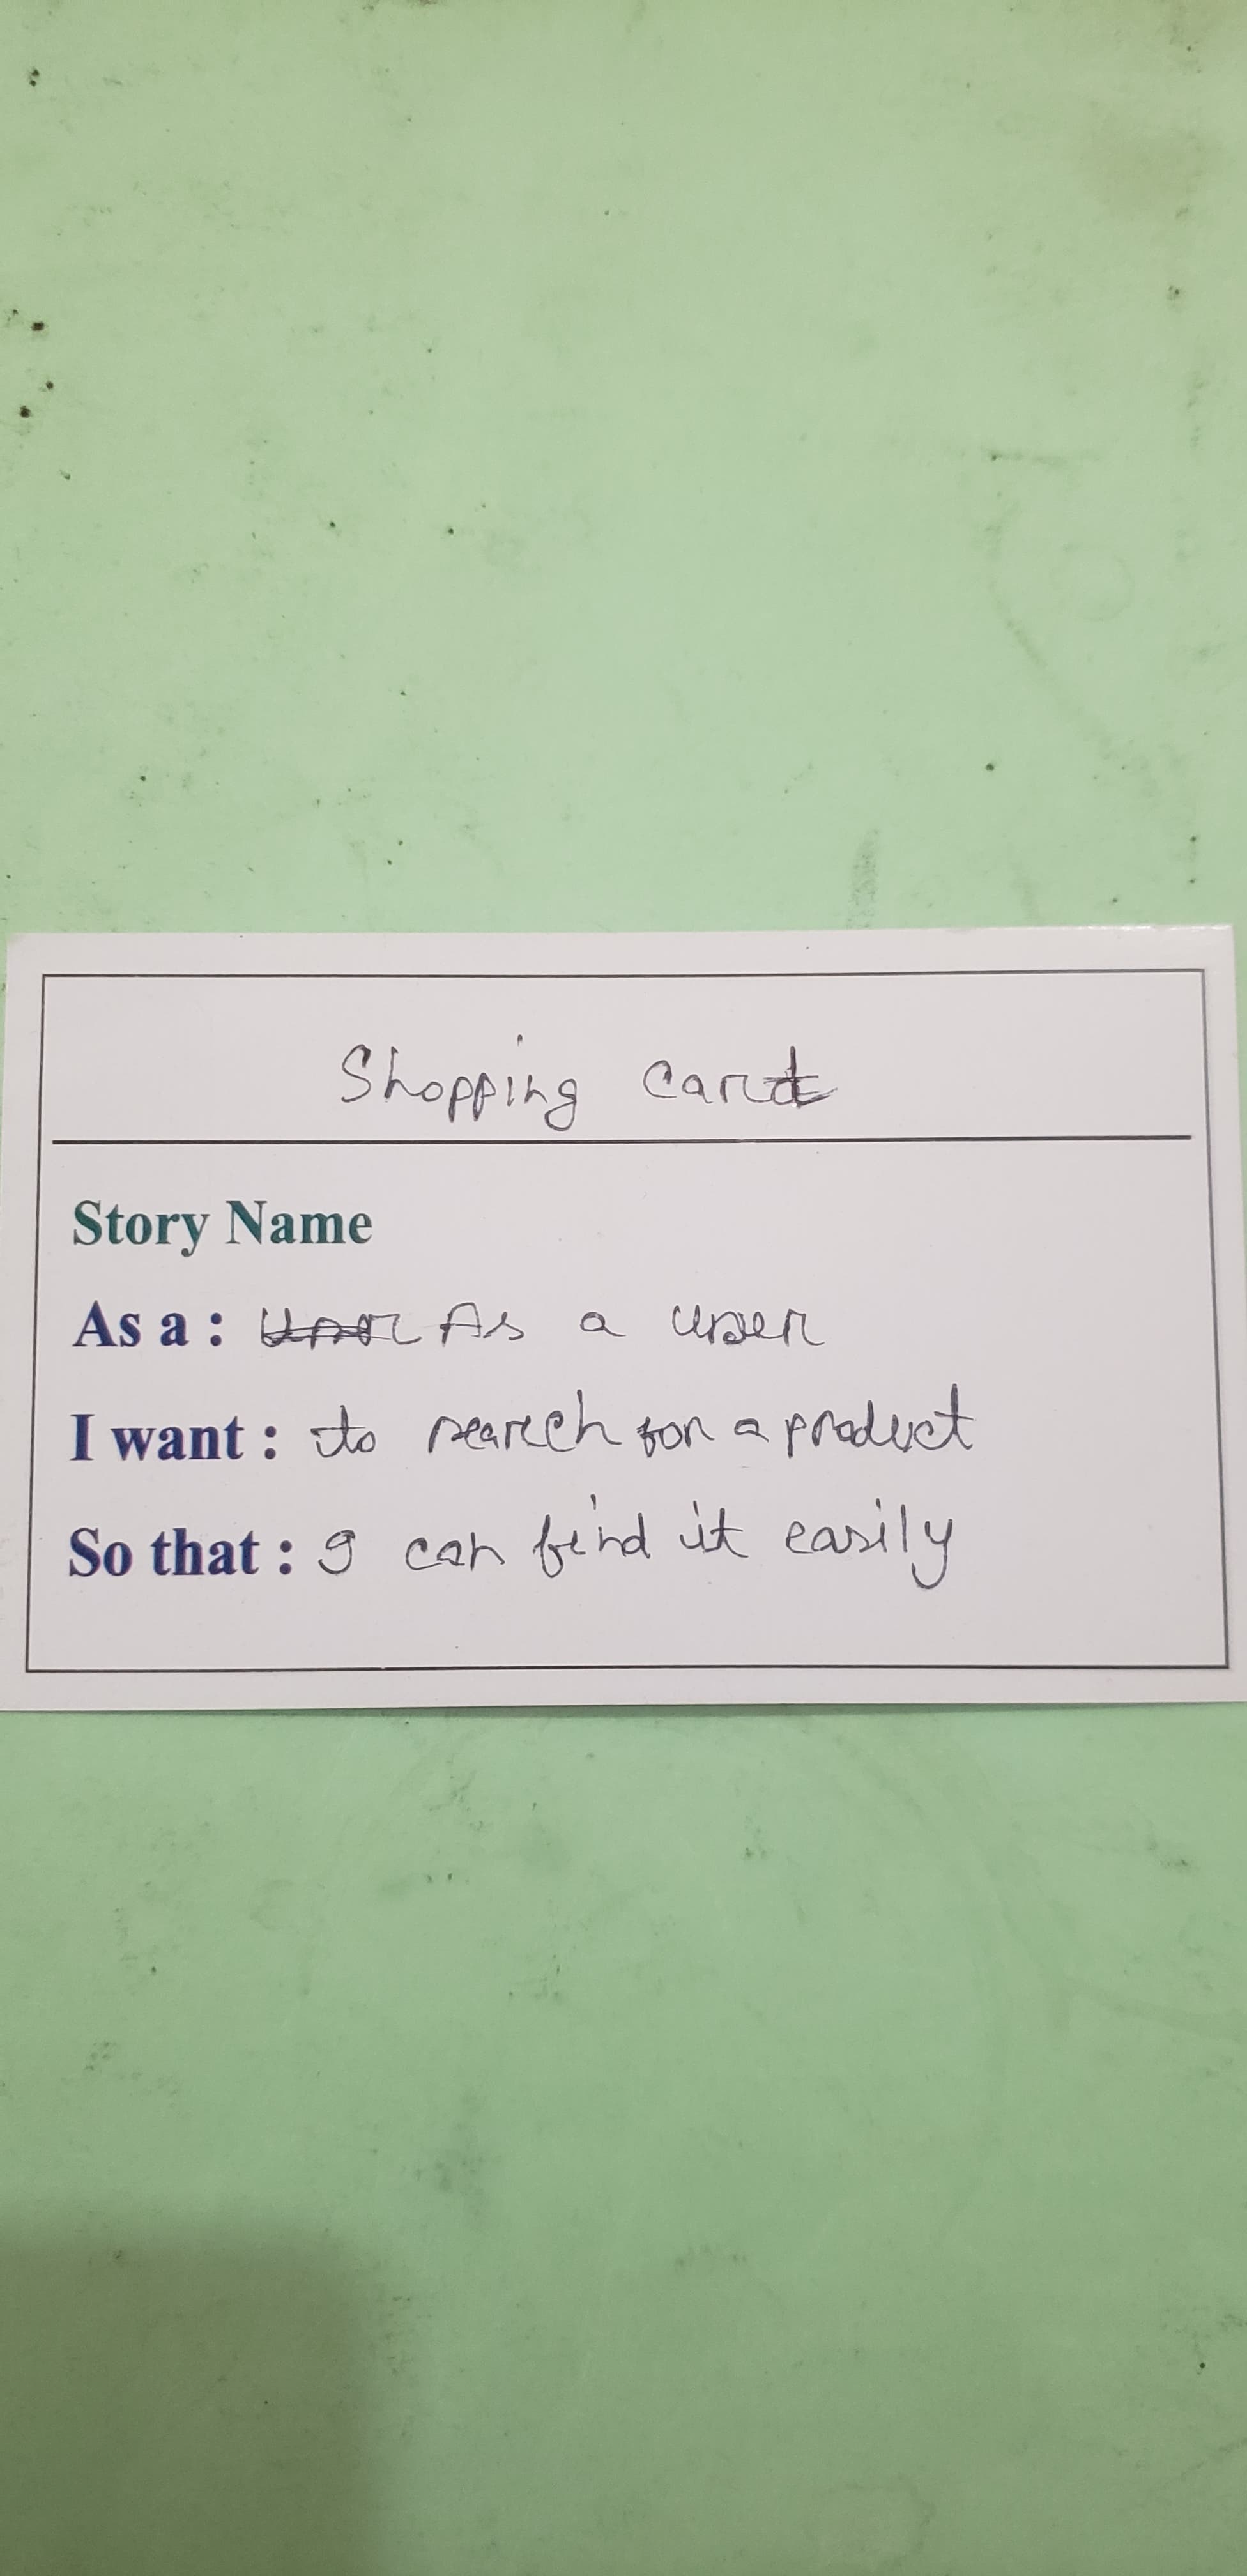 Shopping Cart
Story Name
As a : As a user
I want : to search for a product
So that : I can find it easily